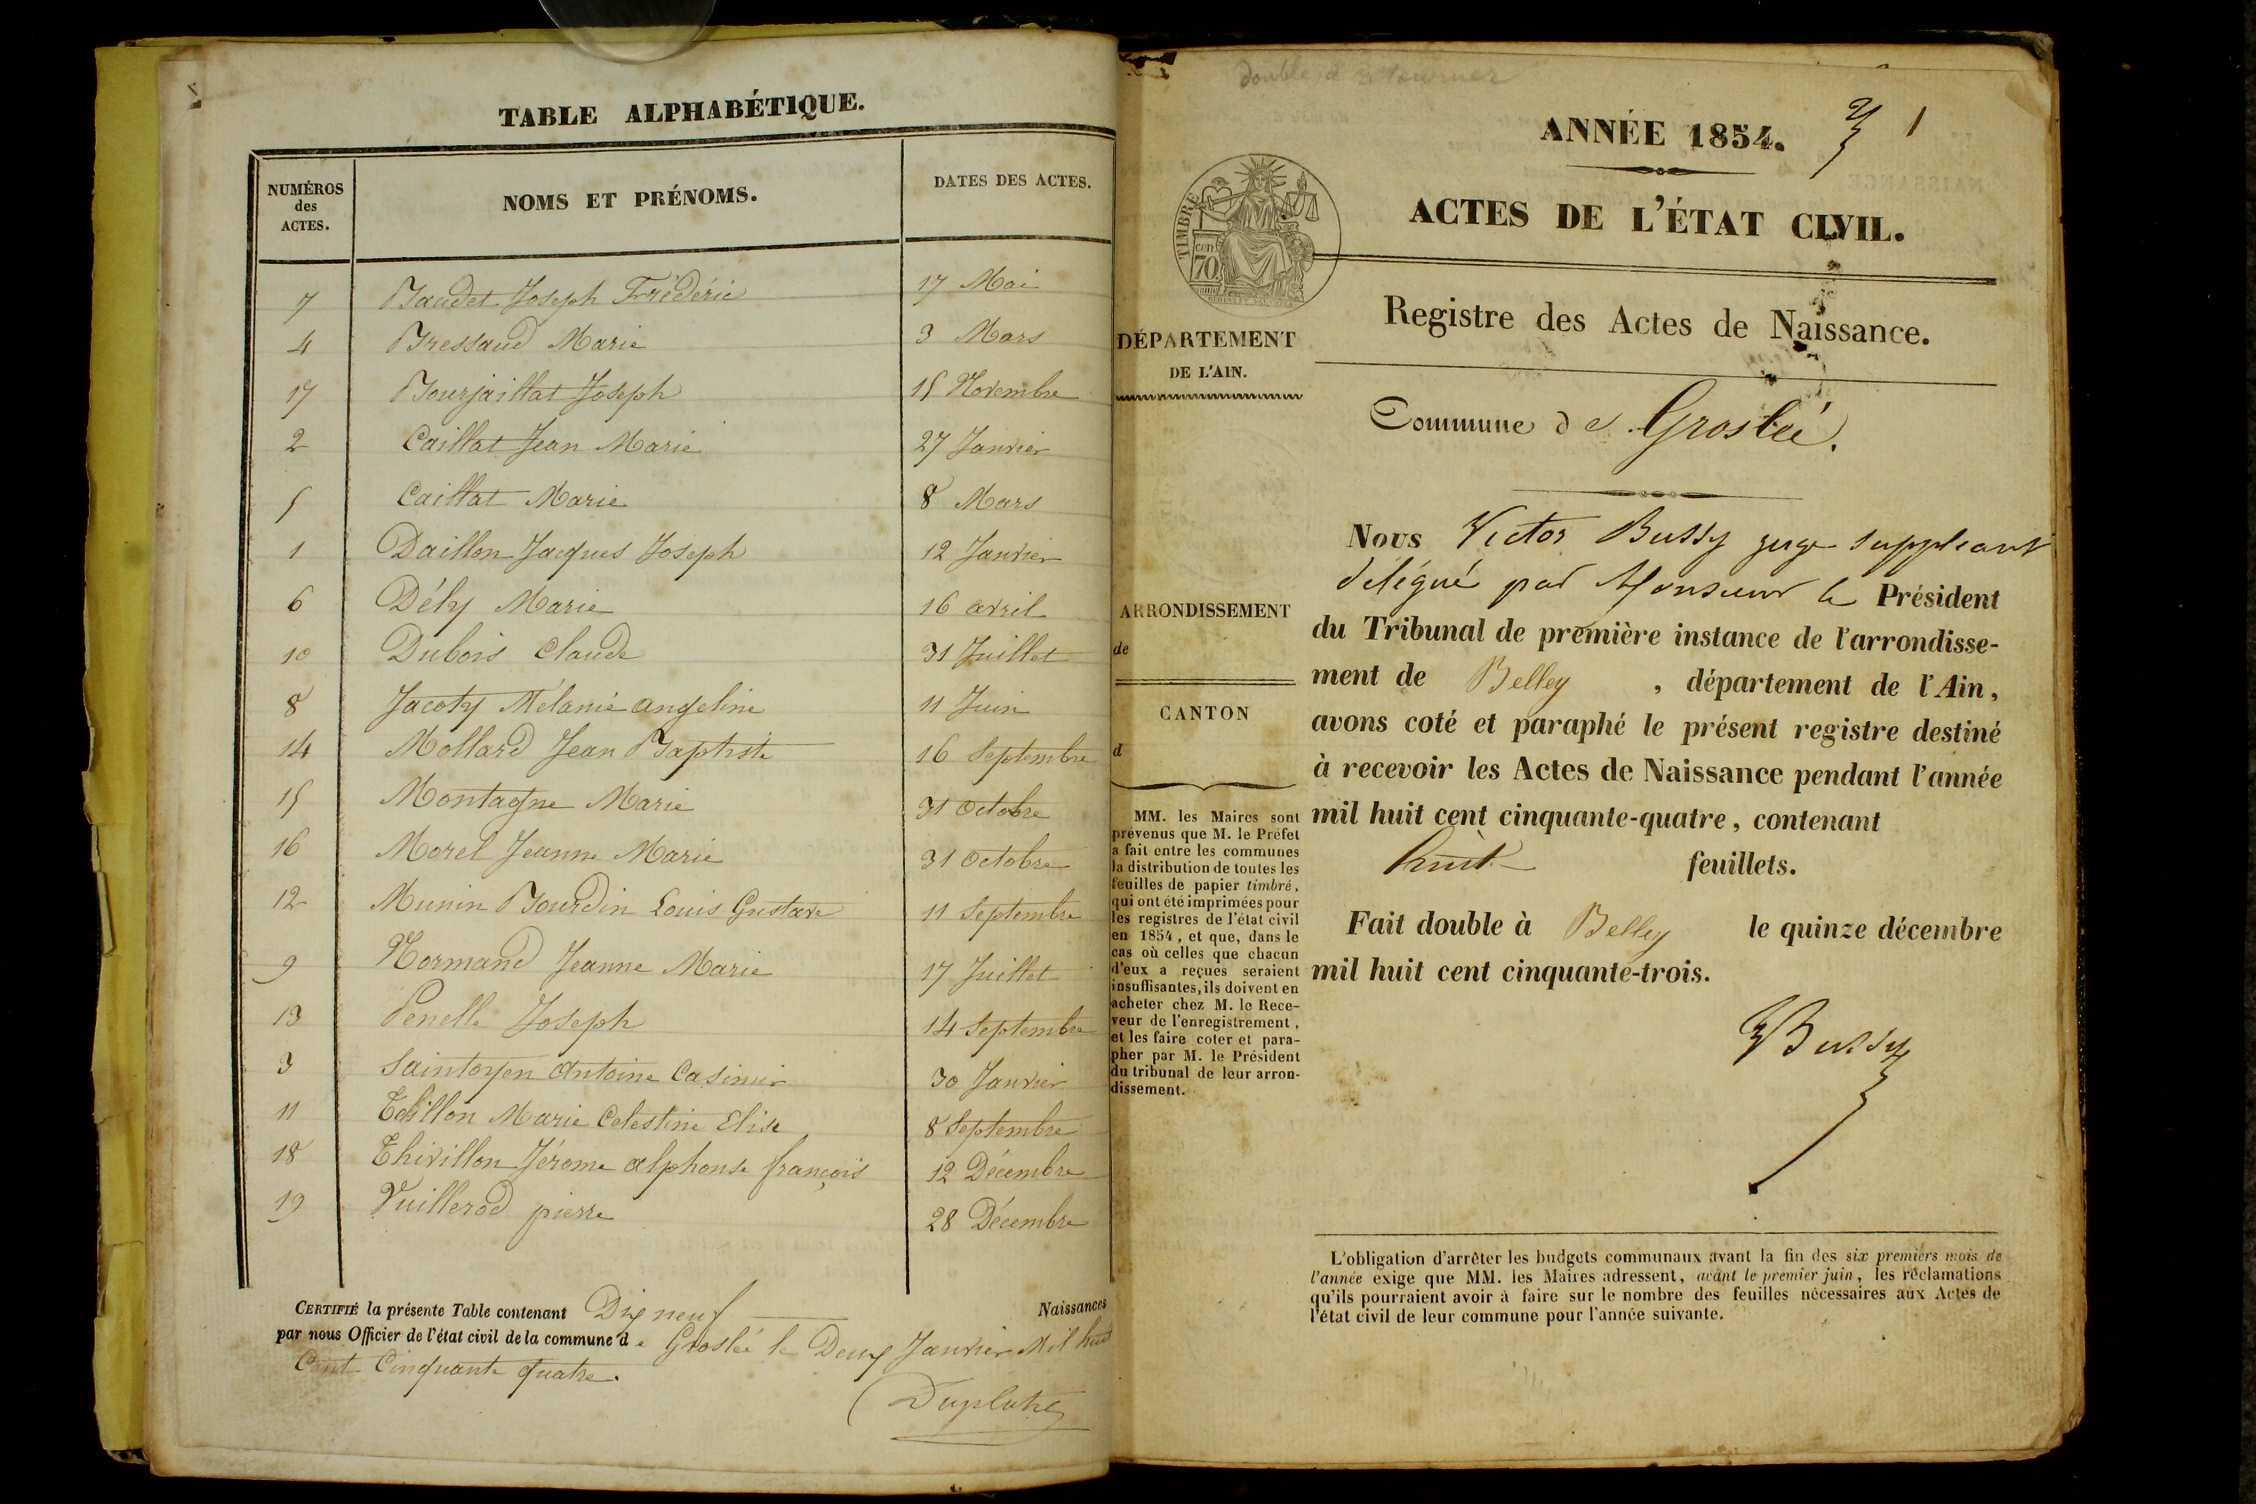 TABLE ALPHABÉTIQUE.
NUMÉROS des ACTES. NOMS ET PRÉNOMS. DATES DES ACTES.
7 Baudet Joseph Frédéric 17 Mai
4 Bressaud Marie 3 Mars
17 Bourjaillat Joseph 15 Novembre
2 Caillat Jean Marie 27 Janvier
5 Caillat Marie 8 Mars
1 Daillon Jacques Joseph 12 Janvier
6 Dély Marie 16 avril
10 Dubois Claude 31 Juillet
8 Jacoty Mélanie angeline 11 Juin
14 Mollard Jean Baptiste 16 Septembre
15 Montagne Marie 31 Octobre
16 Morel Jeanne Marie 31 Octobre
12 Munin Bourdin Louis Gustave 11 Septembre
9 Normand Jeanne Marie 17 Juillet
13 Penelle Joseph 14 Septembre
3 Saintoyen Antoine Casimir 30 Janvier
11 Marie Celestine Elise 8 Septembre
18 Thivillon Jérome alphonse françois 12 Décembre
19 Vuillerod pierre 28 Décembre
CERTIFIÉ la présente Table contenant Dix neuf Naissances
par nous Officier de l'état civil de la commune de Groslée le Deux Janvier Mil huit
Cent Cinquante quatre.
double à
1
ANNÉE 1854.
ACTES DE L'ÉTAT CIVIL.
TIMBRE
70
Registre des Actes de Naissance.
DÉPARTEMENT
DE L'AIN.
Commune de Groslée.
ARRONDISSEMENT
de
CANTON
d
MM. les Maires sont
prévenus que M. le Préfet
a fait entre les communes
la distribution de toutes les
feuilles de papier timbré,
qui ont été imprimées pour
les registres de l'état civil
en 1854, et que, dans le
cas où celles que chacun
d'eux a reçues seraient
insuffisantes, ils doivent en
acheter chez M. le Rece-
veur de l'enregistrement,
et les faire coter et para-
pher par M. le Président
du tribunal de leur arron-
dissement.
Nous Victor Bussy juge suppléant
délégué par Monsieur le Président
du Tribunal de première instance de l'arrondisse-
ment de Belley, département de l'Ain,
avons coté et paraphé le présent registre destiné
à recevoir les Actes de Naissance pendant l'année
mil huit cent cinquante-quatre, contenant
huit feuillets.
Fait double à Belley le quinze décembre
mil huit cent cinquante-trois.
Bussy
L'obligation d'arrêter les budgets communaux avant la fin des six premiers mois de
l'année exige que MM. les Maires adressent, avant le premier juin, les réclamations
qu'ils pourraient avoir à faire sur le nombre des feuilles nécessaires aux Actes de
l'état civil de leur commune pour l'année suivante.